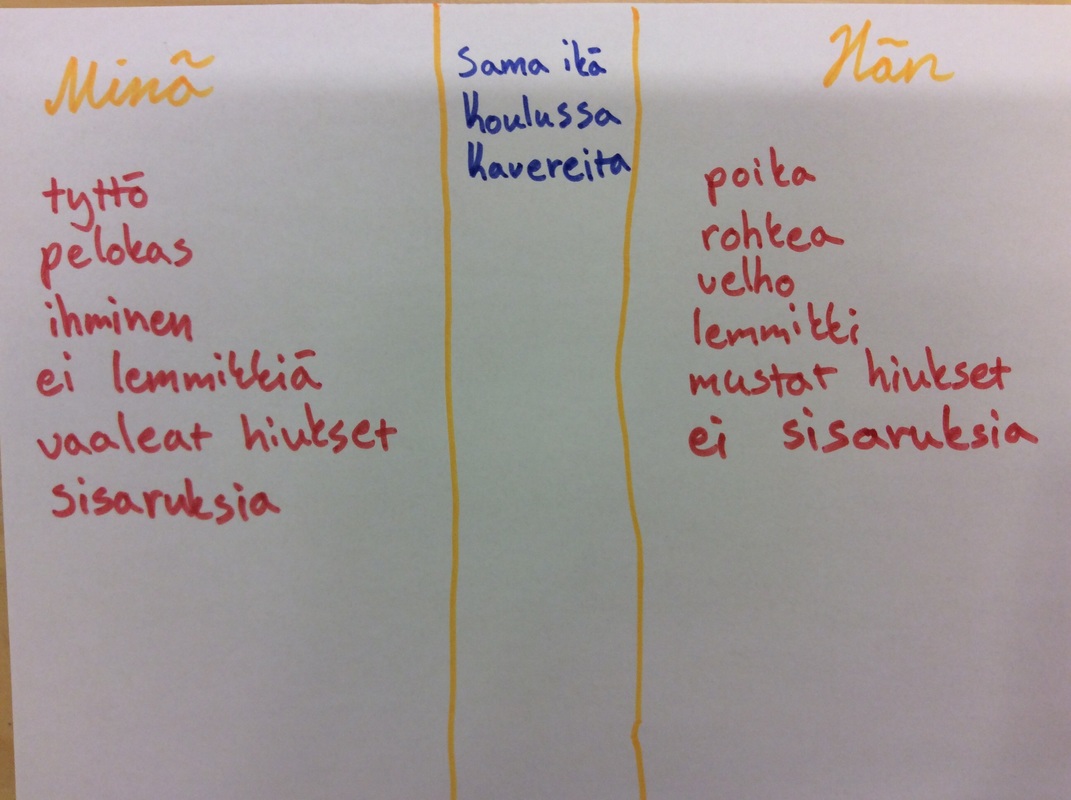 Minä
tyttö
pelokas
ihminen
ei lemmikkiä
vaaleat hiukset
sisaruksia
Sama ikä
Koulussa
Kavereita
Hän
poika
rohkea
velho
lemmikki
mustat hiukset
ei sisaruksia